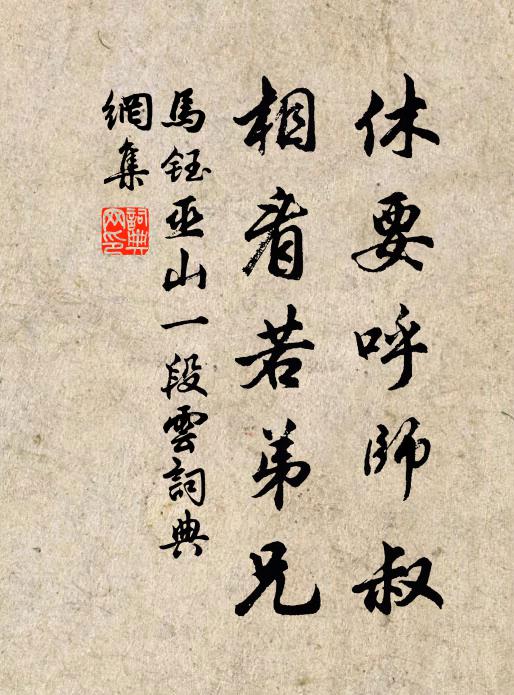 休要呼師叔
相看若弟兄
馬鈺巫山一段雲詞典
網集
詞典
网印